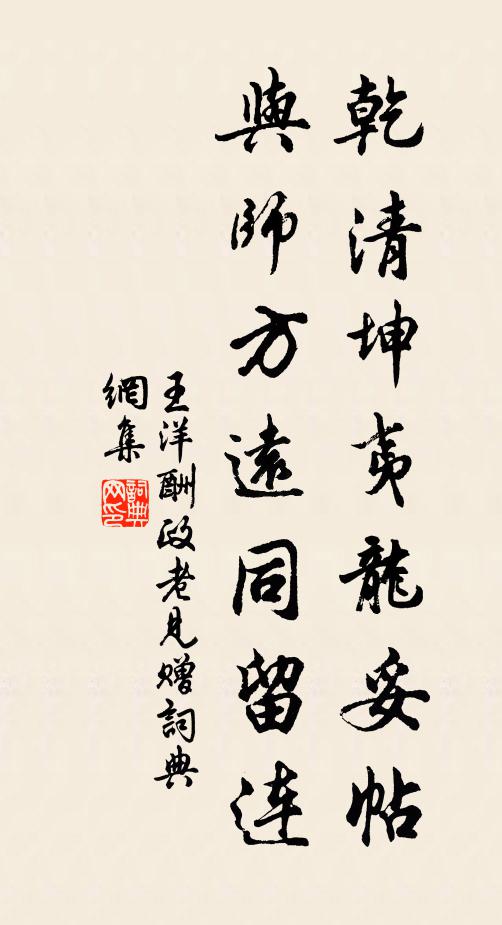 乾清坤夷龍妥帖
與師方遠同留連
王洋酬政老見贈詞典
網集
詞典網印